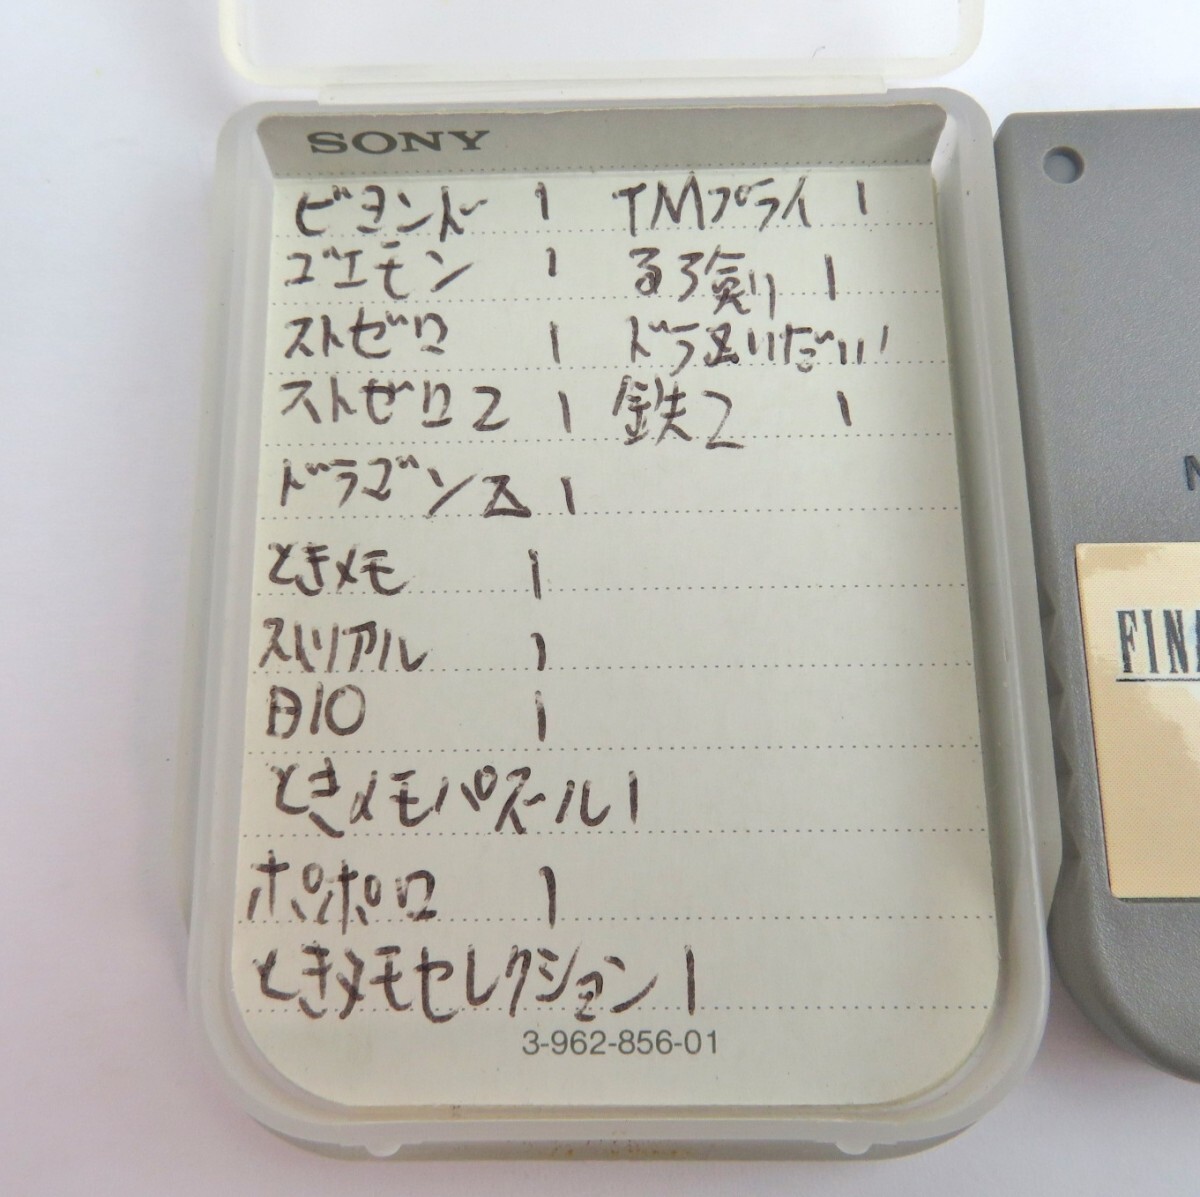 SONY
ビヨンド 1
ゴエモン 1
ストゼロ 1
ストゼロ2 1
ドラゴンZ 1
ときメモ 1
ストリアル 1
BIO 1
ときメモパズール 1
ポポロ 1
ときメモセレクション 1
TMプライ 1
るろ剣 1
鉄2 1
3-962-856-01
FINA